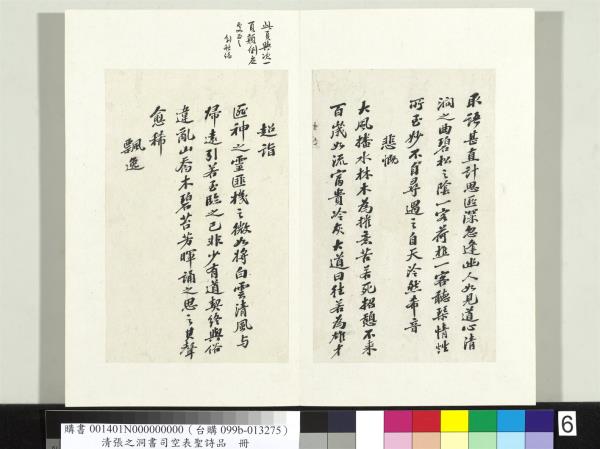 取語甚直計思匪深忽逢幽人如見道心清
澗之曲碧松之陰一客荷樵一客聽琴情性
所至妙不自尋遇之自天泠然希音
悲慨
大風捲水林木為摧意苦若死招憩不來
百歲如流富貴冷灰大道日往若為雄才
超詣
匪神之靈匪機之微如將白雲清風與
歸遠引若至臨之已非少有道契終與俗
違亂山喬木碧苔芳暉誦之思之其聲
愈稀
飄逸
此頁與次一
頁顛倒
購書 001401N000000000（台購 099b-013275）
清張之洞書司空表聖詩品 冊
6